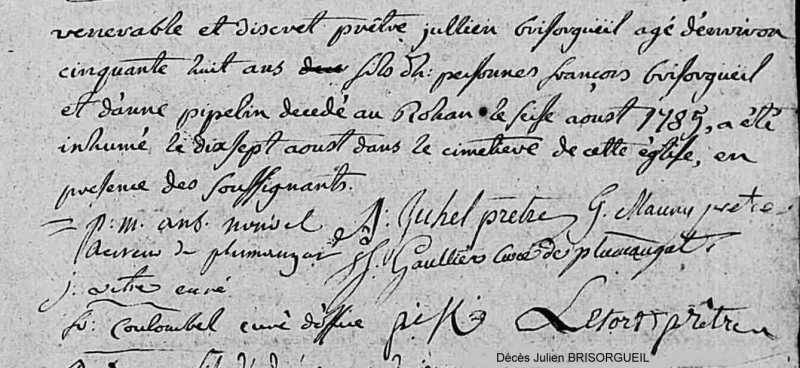 venerable et discret prêtre jullien brisorgueil agé denviron
cinquante huit ans fils dh: personnes françois brisorgueil
et danne pipelin decedé au Rohan le seise aoust 1785, a été
inhumé le dixsept aoust dans le cimetiere de cette église, en
presence des soussignants.
p: m. ans. J: Juhel prêtre G. Maunu pretre
Recteur de plumaugat J. Gaultier curé de plumaugat
j. vitre curé
fr: Coulombel curé Lesort prêtre
Décès Julien BRISORGUEIL